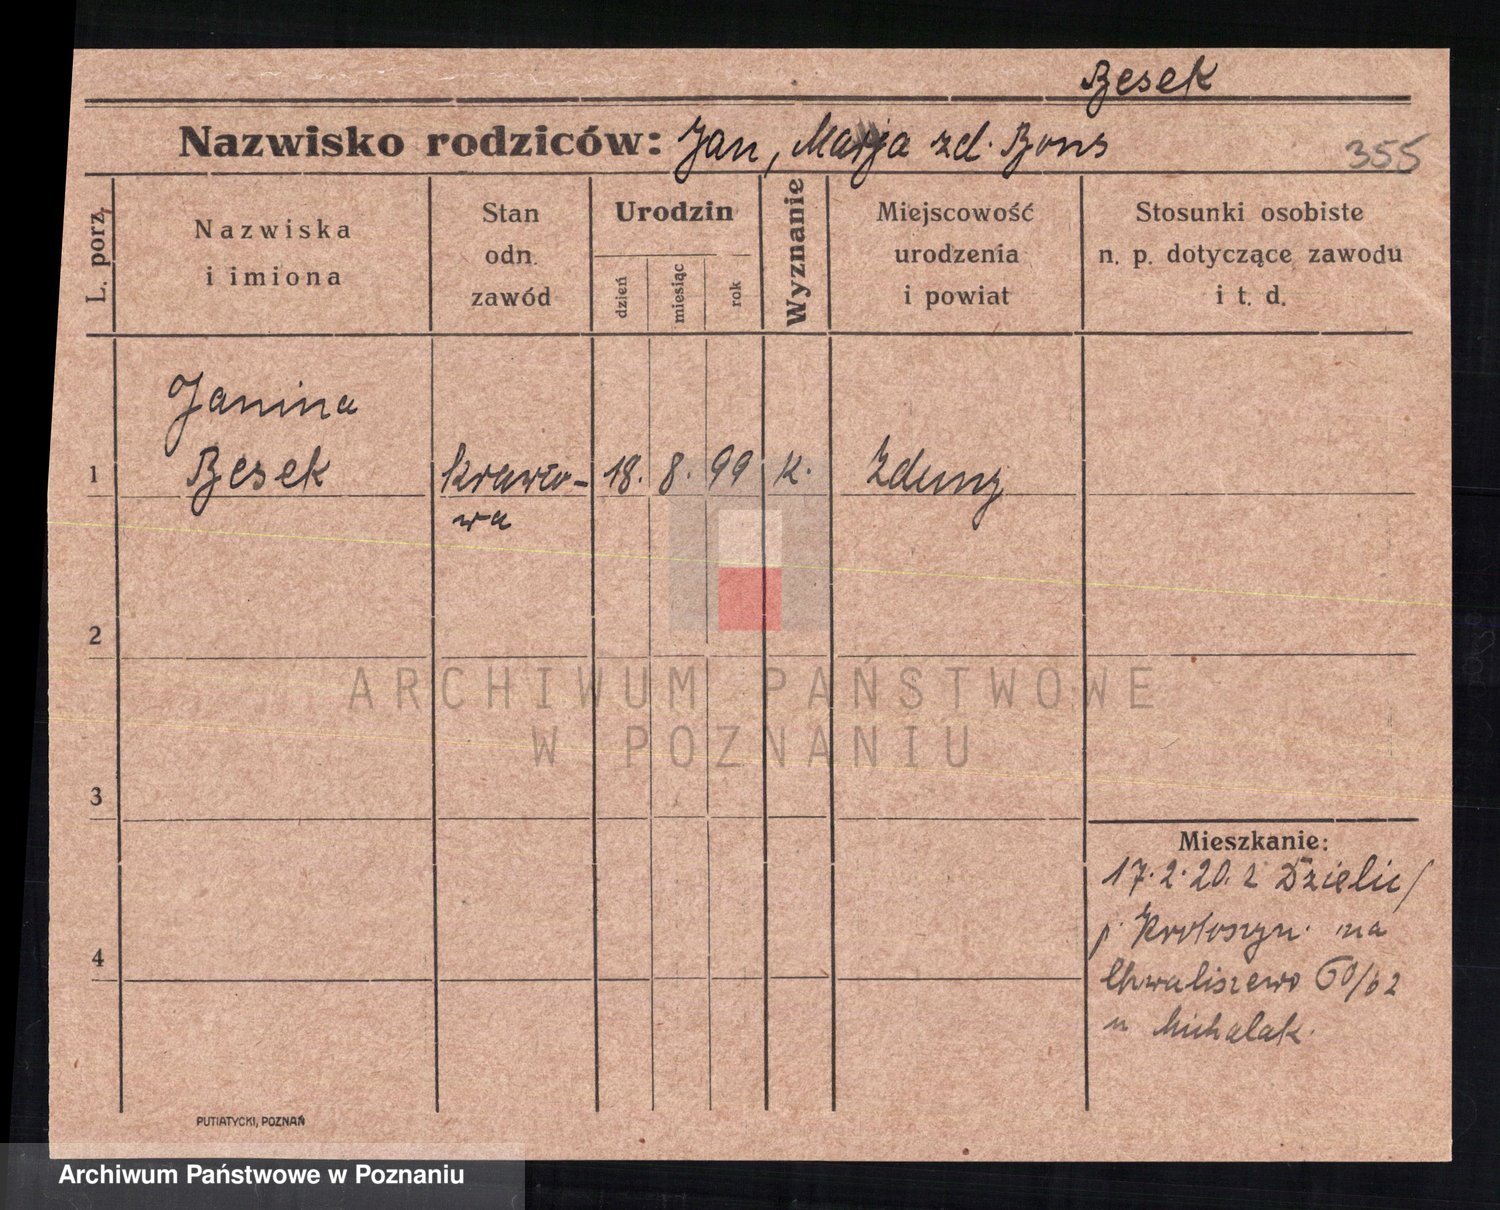 Besek
Nazwisko rodziców: Jan, Marja zd. Bons
355
L. porz.
Nazwiska
i imiona
Stan
odn.
zawód
Urodzin
dzień
miesiąc
rok
Wyznanie
Miejscowość
urodzenia
i powiat
Stosunki osobiste
n. p. dotyczące zawodu
i t. d.
Janina
1 Besek krawco- 18. 8. 99 k. Zduny
wa
2
ARCHIWUM PAŃSTWOWE
W POZNANIU
3
Mieszkanie:
17.2.20. z Dzielic/
p. Krotoszyn. na
4
Chwaliszewo 60/62
u Michalak.
PUTIATYCKI, POZNAŃ
Archiwum Państwowe w Poznaniu